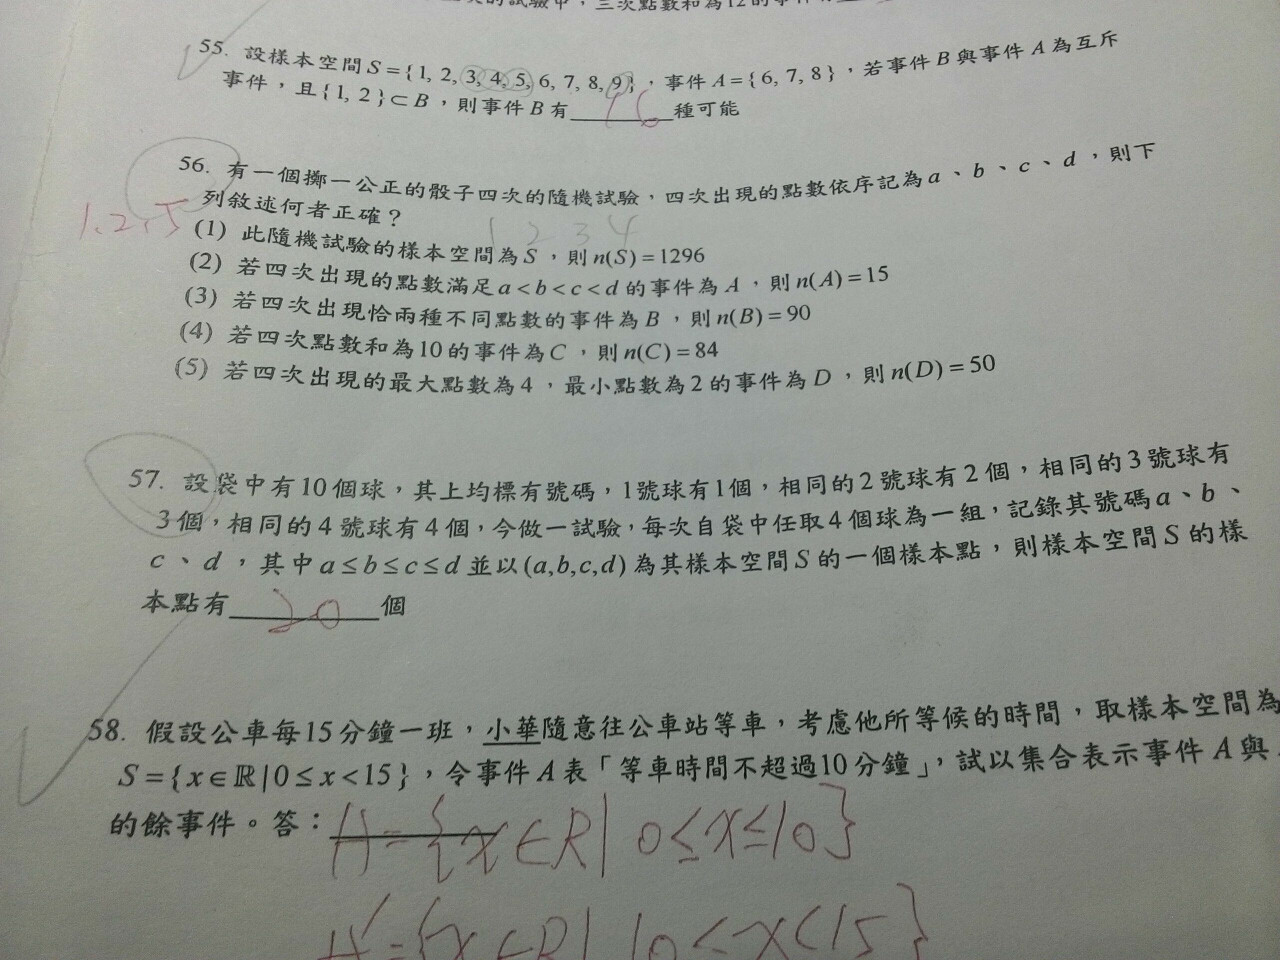 的試驗中，三次點數和為12的事件
55. 設樣本空間S={1, 2, 3, 4, 5, 6, 7, 8, 9}，事件A={6, 7, 8}，若事件B與事件A為互斥
事件，且{1, 2}⊂B，則事件B有16種可能
56. 有一個擲一公正的骰子四次的隨機試驗，四次出現的點數依序記為a、b、c、d，則下
列敘述何者正確？
1,2,5
(1) 此隨機試驗的樣本空間為S，則n(S)=1296
1 2 3 4
(2) 若四次出現的點數滿足a<b<c<d的事件為A，則n(A)=15
(3) 若四次出現恰兩種不同點數的事件為B，則n(B)=90
(4) 若四次點數和為10的事件為C，則n(C)=84
(5) 若四次出現的最大點數為4，最小點數為2的事件為D，則n(D)=50
57. 設袋中有10個球，其上均標有號碼，1號球有1個，相同的2號球有2個，相同的3號球有
3個，相同的4號球有4個，今做一試驗，每次自袋中任取4個球為一組，記錄其號碼a、b、
c、d，其中a≤b≤c≤d並以(a,b,c,d)為其樣本空間S的一個樣本點，則樣本空間S的樣
本點有20個
58. 假設公車每15分鐘一班，小華隨意往公車站等車，考慮他所等候的時間，取樣本空間為
S={x∈ℝ|0≤x<15}，令事件A表「等車時間不超過10分鐘」，試以集合表示事件A與
的餘事件。答：A={x∈R|0≤x≤10}
A'={x∈R|10<x<15}